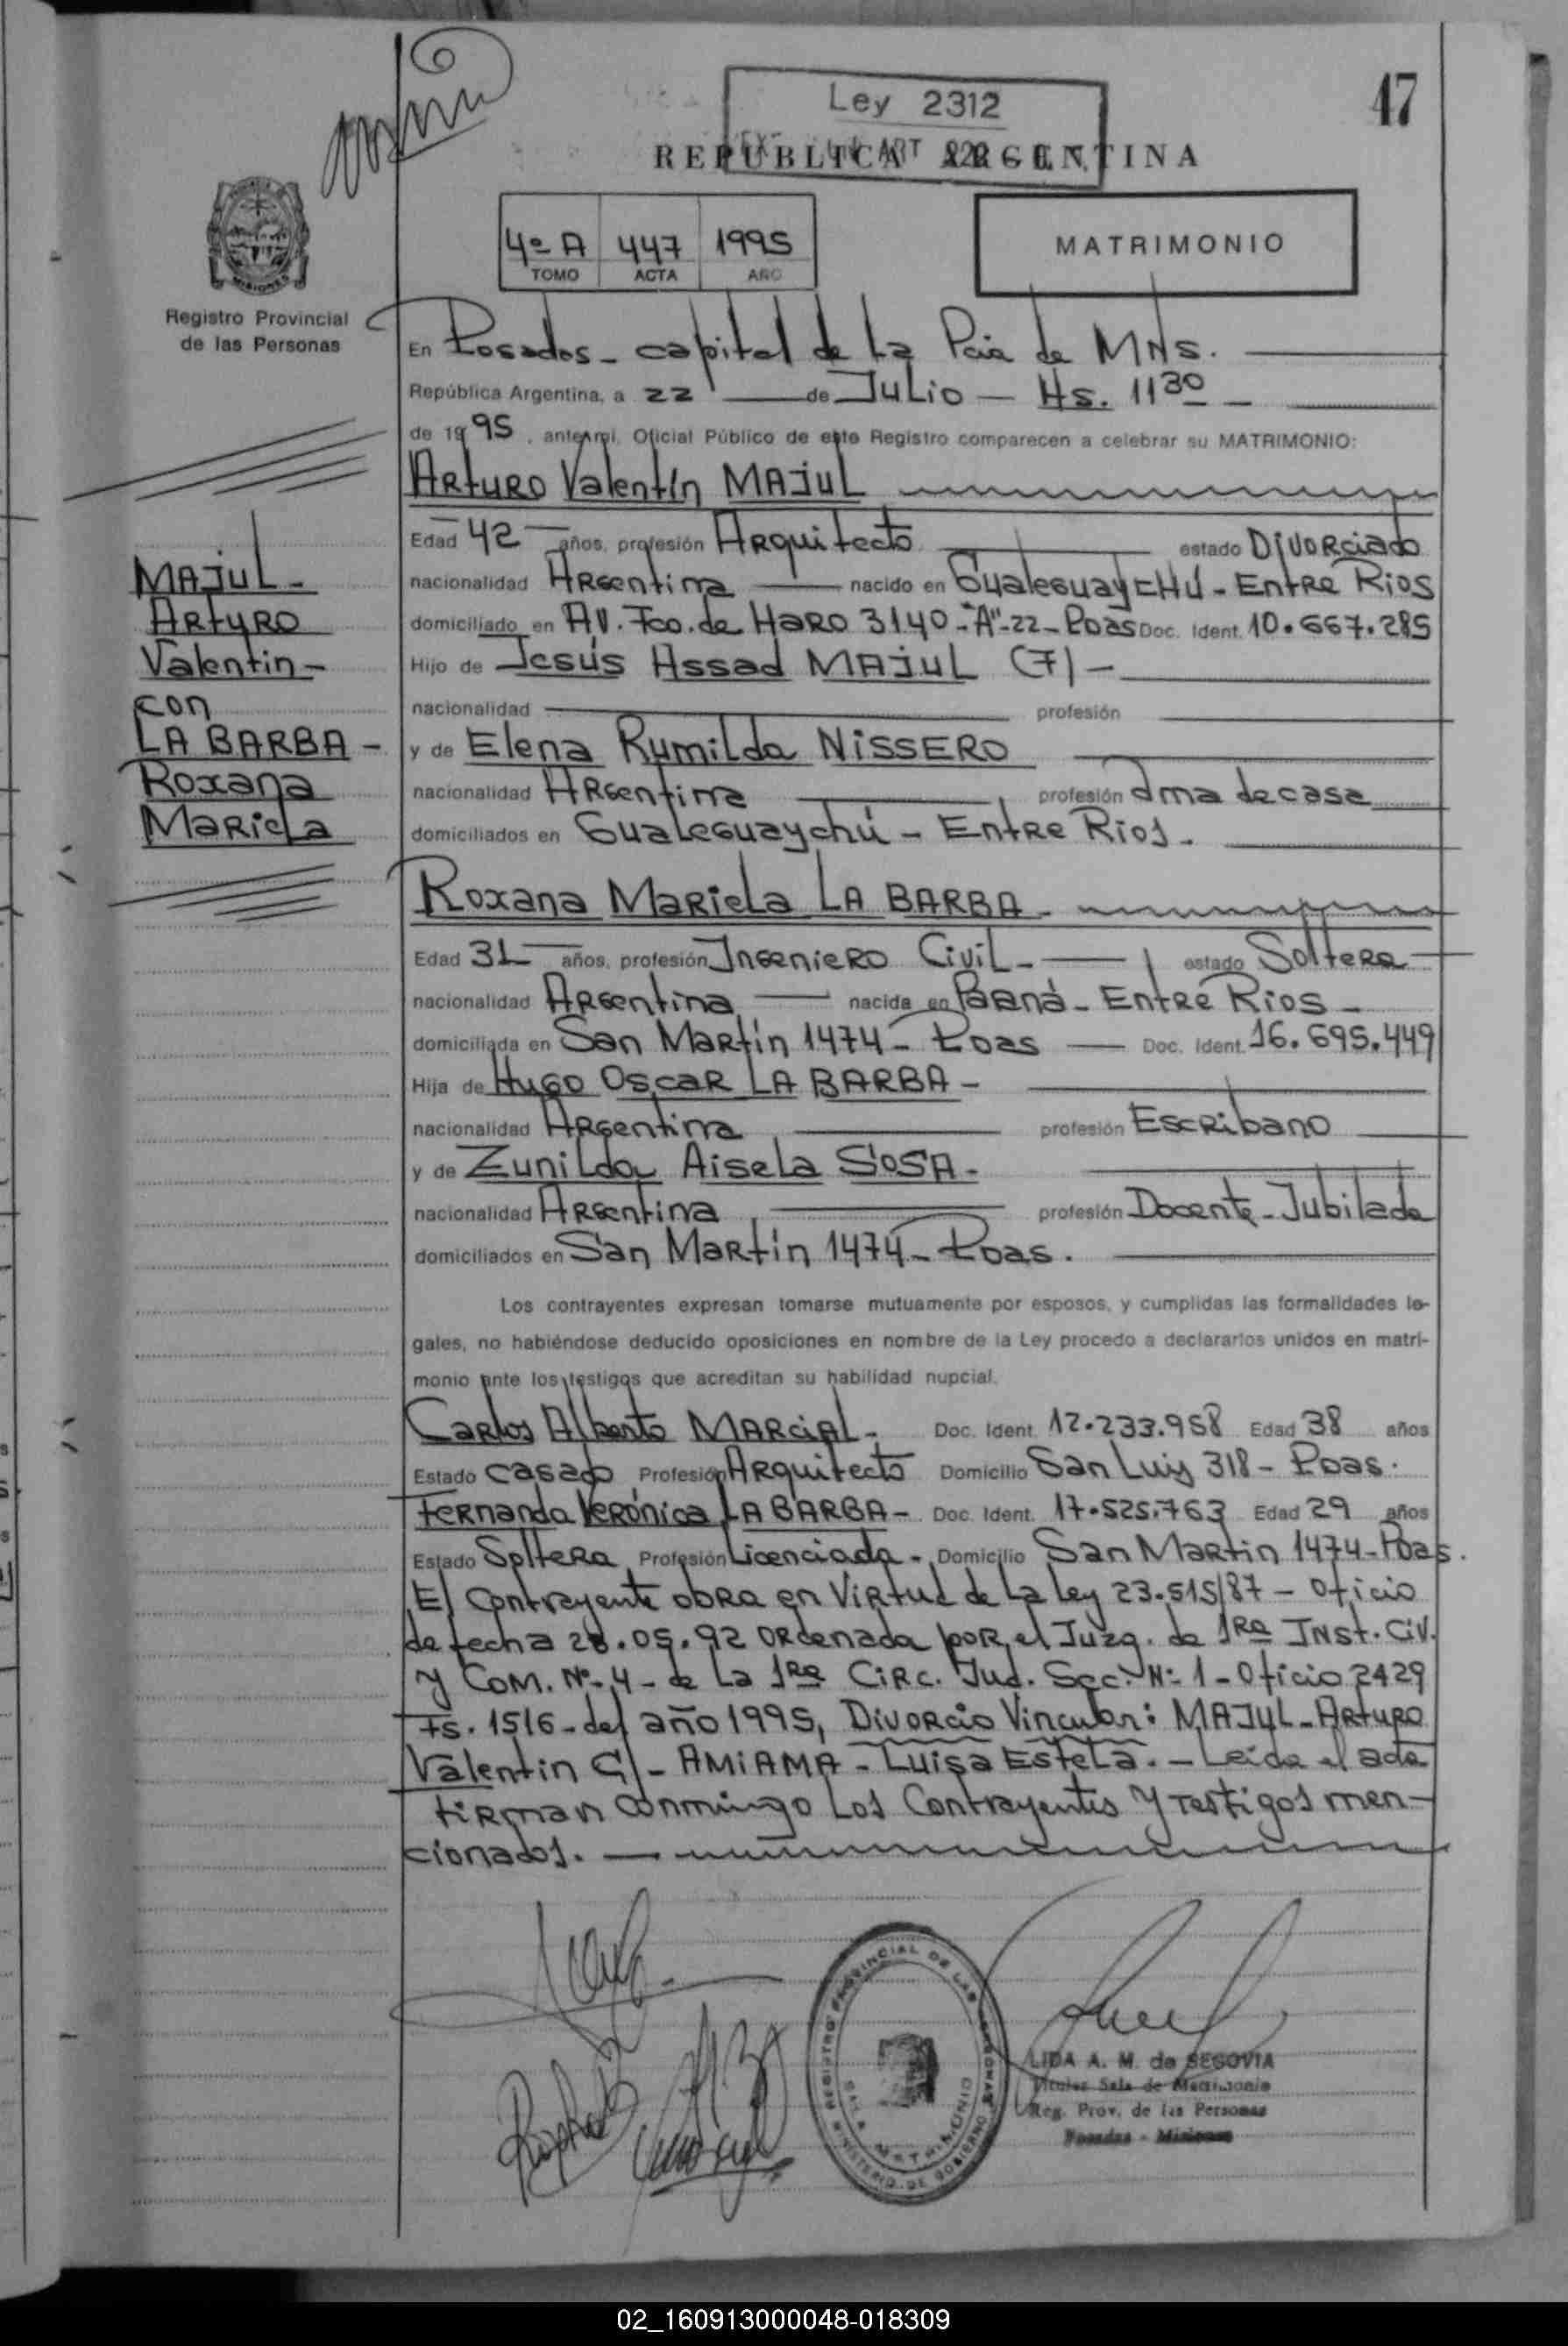 47
Ley 2312
REPUBLICA ARGENTINA
4º A 447 1995
TOMO ACTA AÑO
MATRIMONIO
MISIONES
Registro Provincial
de las Personas
En Posadas - capital de La Pcia de MNs.
República Argentina, a 22 de Julio - Hs. 11 30 -
de 1995, ante mi, Oficial Público de este Registro comparecen a celebrar su MATRIMONIO:
Arturo Valentín MAJUL
Edad 42 años, profesión Arquitecto estado Divorciado
nacionalidad Argentina nacido en Gualeguaychú - Entre Rios
domiciliado en AV. Fco. de Haro 3140 - "A" - 22 - Poas Doc. Ident. 10.667.285
Hijo de Jesús Assad MAJUL (7) -
nacionalidad profesión
y de Elena Rumilda NISSERO
nacionalidad Argentina profesión Ama de casa
domiciliados en Gualeguaychú - Entre Rios.
MAJUL -
Arturo
Valentin -
con
LA BARBA -
Roxana
Mariela
Roxana Mariela LA BARBA -
Edad 31 años, profesión Ingeniero Civil - estado Soltera
nacionalidad Argentina nacida en Paraná - Entre Rios -
domiciliada en San Martín 1474 - Poas Doc. Ident. 16.695.449
Hija de Hugo Oscar LA BARBA -
nacionalidad Argentina profesión Escribano
y de Zunilda Aisela SOSA -
nacionalidad Argentina profesión Docente - Jubilada
domiciliados en San Martín 1474 - Poas.
Los contrayentes expresan tomarse mutuamente por esposos, y cumplidas las formalidades le-
gales, no habiéndose deducido oposiciones en nombre de la Ley procedo a declararlos unidos en matri-
monio ante los testigos que acreditan su habilidad nupcial.
Carlos Alberto MARCIAL - Doc. Ident. 12.233.958 Edad 38 años
Estado casado Profesión Arquitecto Domicilio San Luis 318 - Poas.
Fernanda Verónica LA BARBA - Doc. Ident. 17.525.763 Edad 29 años
Estado Soltera Profesión Licenciada - Domicilio San Martin 1474 - Poas.
El Contrayente obra en Virtud de La Ley 23.515/87 - Oficio
de fecha 28.05.92 ordenada por el Juzg. de 1Ra Inst. Civ.
y Com. Nº 4 - de La 1Ra Circ. Jud. Sec. Nº 1 - Oficio 2429
Fs. 1516 - del año 1995, Divorcio Vincular: MAJUL - Arturo
Valentin C/ - AMIAMA - Luisa Estela. - Leida el acta
firman conmingo Los Contrayentes y Testigos men-
cionados.
REGISTRO PROVINCIAL DE LAS PERSONAS
SALA MATRIMONIO
MINISTERIO DE GOBIERNO
LIDA A. M. de SEGOVIA
Titular Sala de Matrimonio
Reg. Prov. de las Personas
Posadas - Misiones
02_160913000048-018309